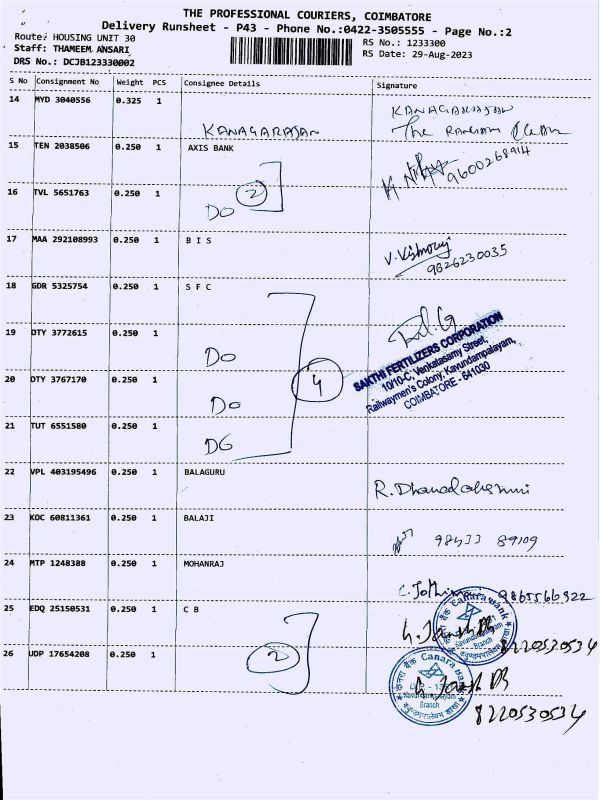 THE PROFESSIONAL COURIERS, COIMBATORE
Delivery Runsheet - P43 - Phone No.:0422-3505555 - Page No.:2
Route: HOUSING UNIT 30
RS No.: 1233300
Staff: THAMEEM ANSARI
RS Date: 29-Aug-2023
DRS No.: DCJB123330002
S No Consignment No Weight PCS Consignee Details Signature
14 MYD 3040556 0.325 1 KANAGARAJAN KANAGARAJAN
The
15 TEN 2038506 0.250 1 AXIS BANK 9600268914
16 TVL 5651763 0.250 1 DO 2
17 MAA 292108993 0.250 1 B I S
9826230035
18 GDR 5325754 0.250 1 S F C
19 OTY 3772615 0.250 1 DO
20 OTY 3767170 0.250 1 DO 4
SAKTHI FERTILIZERS CORPORATION
10/10-C, Venkatasamy Street,
Railwaymen's Colony, Kavundampalayam,
COIMBATORE - 641030
21 TUT 6551580 0.250 1 DO
22 VPL 403195496 0.250 1 BALAGURU
23 KOC 60811361 0.250 1 BALAJI 89109
24 MTP 1248388 0.250 1 MOHANRAJ
25 EDQ 25150531 0.250 1 C B
Canara Bank
Branch
8220530534
26 UDP 17654208 0.250 1 2
Canara
Branch
8220530534